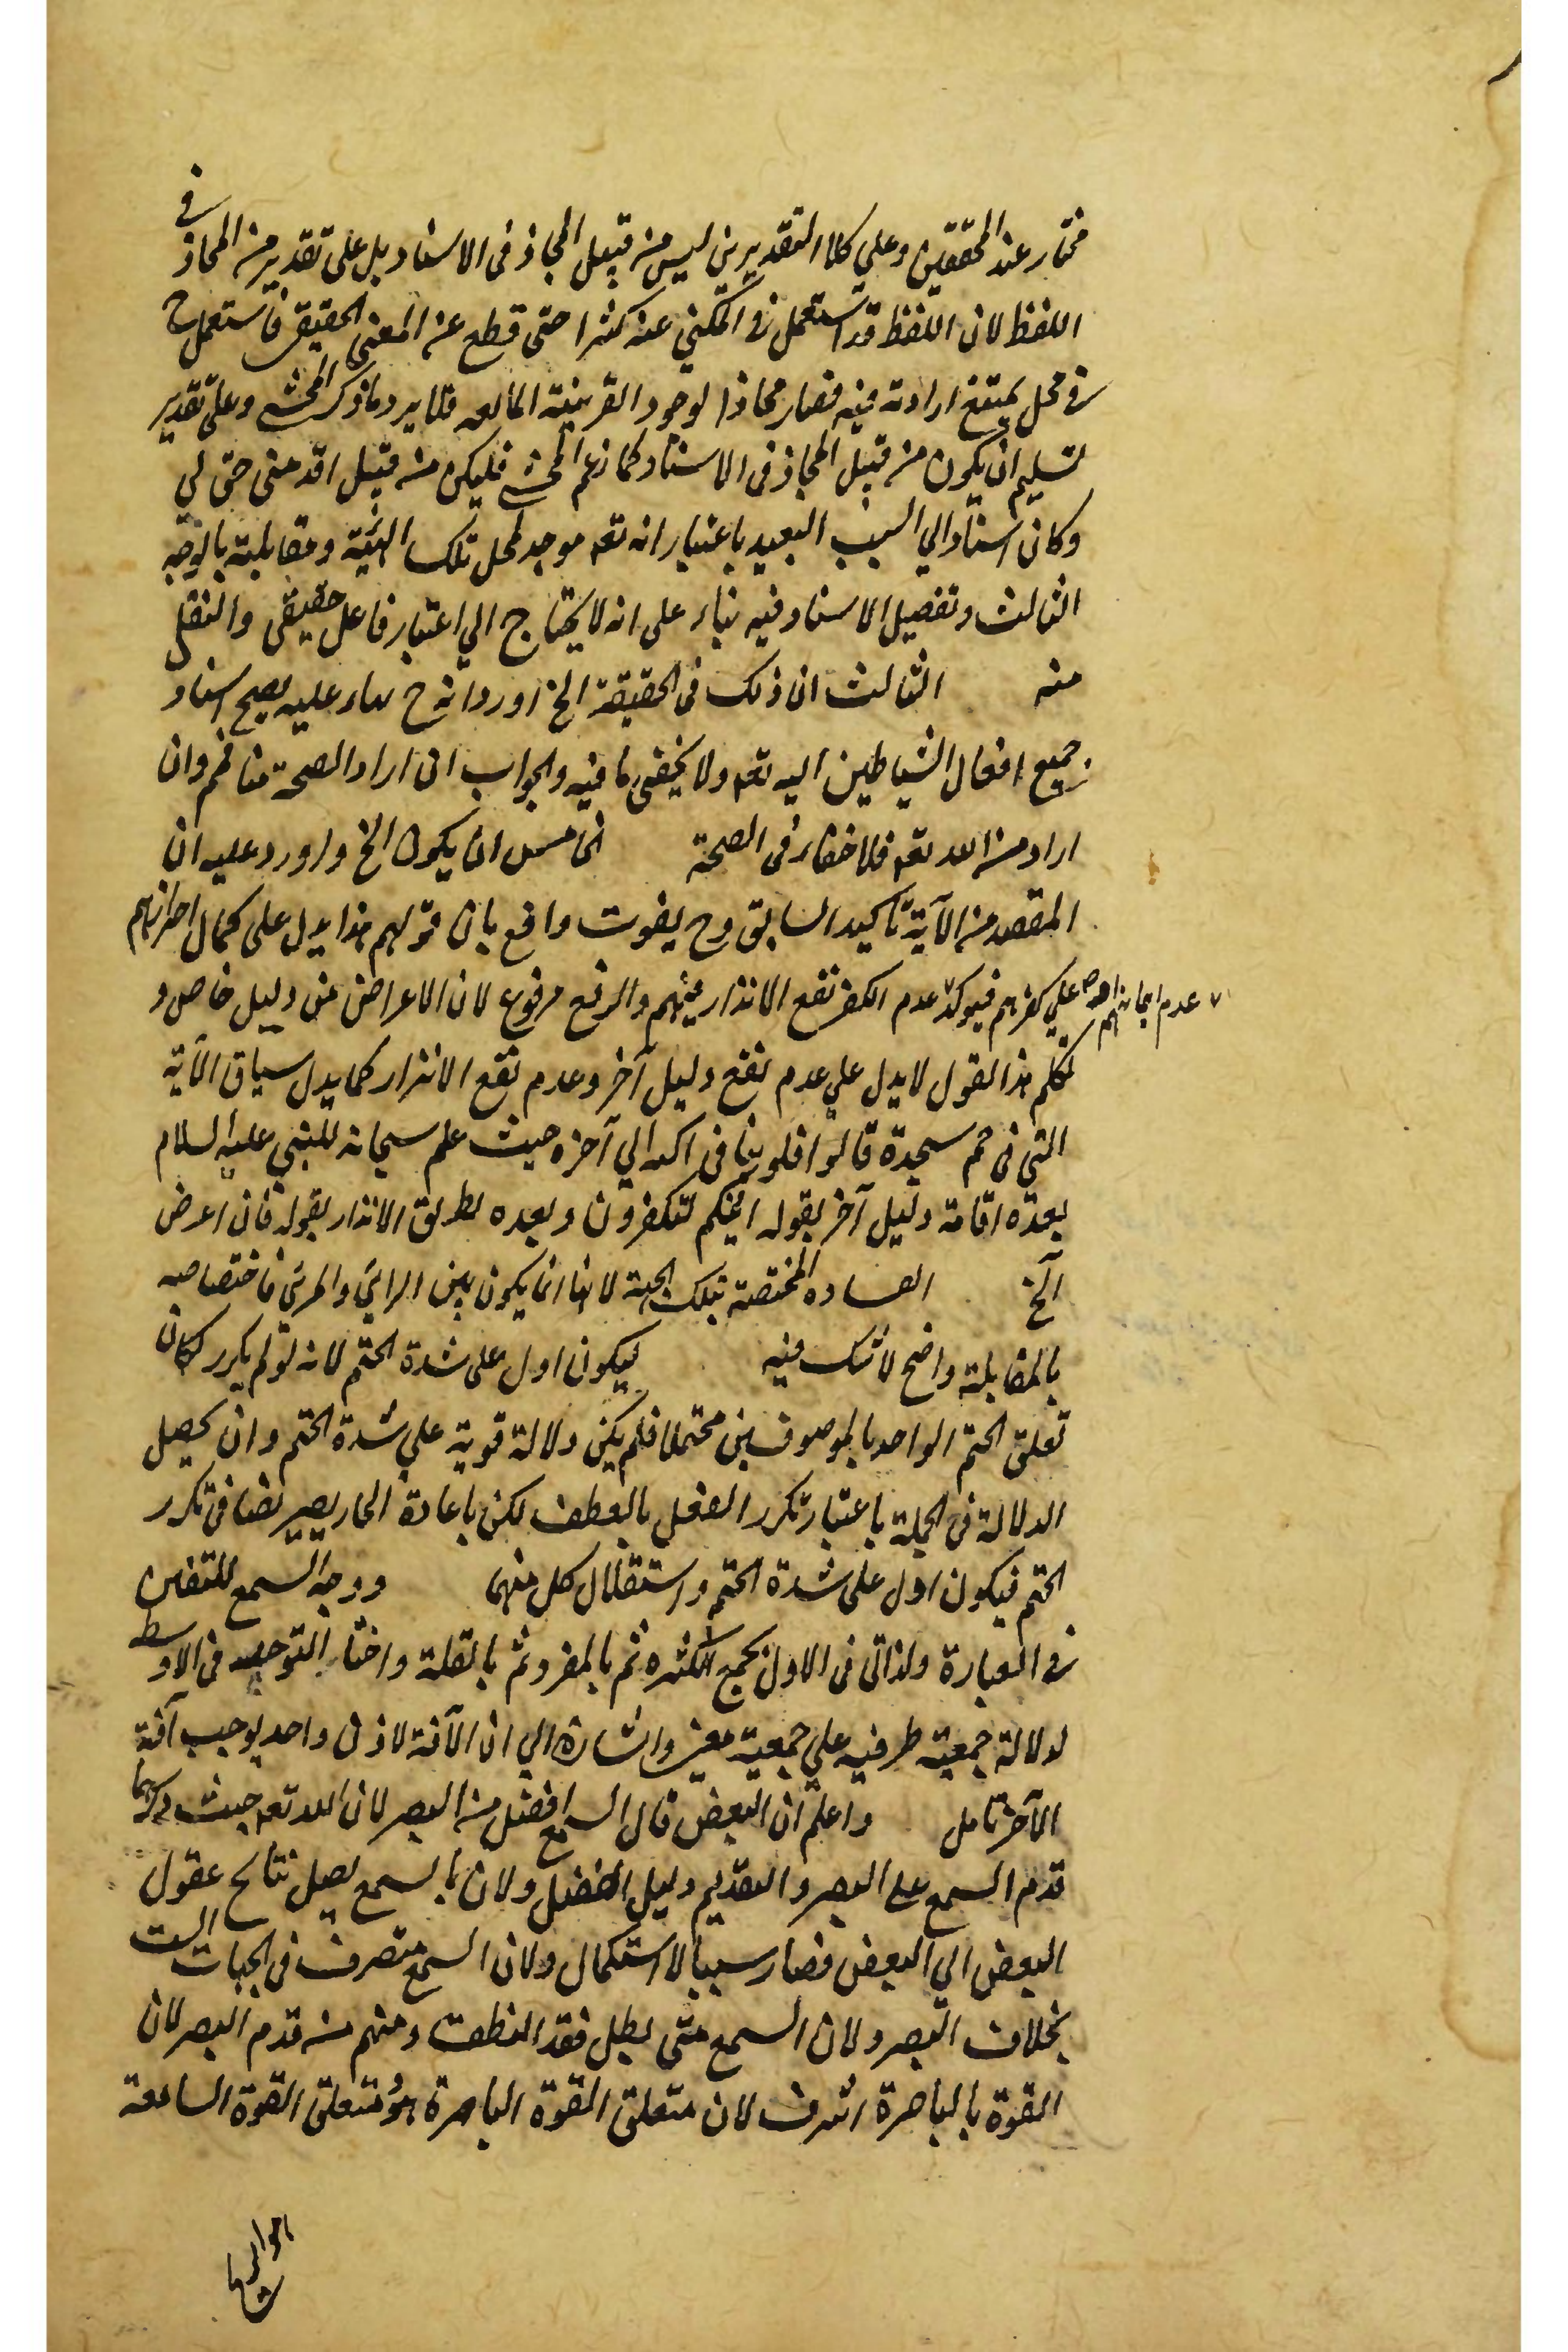 مختار عند المحققين وعلي كلا التقديرين ليس من قبيل المجاز في الاسناد بل على تقدير من المجاز في
اللفظ لان اللفظ قد استعمل في المكني عنه كثيرا حتى قطع عن المعنى الحقيقي فاستعمل ح
في محل يمتنع ارادته فيه فصار مجازا لوجود القرينة المانعه فلا يرد ما ذكر المحشي وعلى تقدير
تسليم ان يكون من قبيل المجاز في الاسناد كما زعم المحشي فليكن من قبيل اقدمنى حق لي
وكان اسنادا الي السبب البعيد باعتبار انه تعه موجد لمحل تلك الهيئة ومقابلته بالوجه
الثالث وتفصيل الاسناد فيه بناء على انه لا يحتاج الي اعتبار فاعل حقيقى والنقل
منه الثالث ان ذلك في الحقيقة الخ اورد انه ح بناء عليه يصح اسناد
جميع افعال الشياطين اليه تعه ولا يخفى ما فيه والجواب ان اراد الصحة منا فمم وان
اراد من الله تعه فلا خفاء في الصحة الخامس ان يكون الخ واورد عليه ان
المقصد من الآية تأكيد السابق وح يفوت وافع بان قولهم هذا يدل على كمال اصرارهم
علي كفرهم فيوكد عدم نفع الانذار منهم والدفع مرفوع لان الاعراض عن دليل خاص و
عدم ايمانهم اهـ صح
تكلم هذا القول لا يدل علي عدم نفع دليل آخر وعدم نفع الانذار كما يدل سياق الآية
التي في حم سجدة قالوا قلوبنا في اكنه الي آخره حيث علم سبحانه للنبي عليه السلام
بعده اقامة دليل آخر بقوله ائنكم لتكفرون وبعده بطريق الانذار بقوله فان اعرض
الخ المختصة بتلك الجهة لانها انما يكون بين الرائي والمرئي فاختصاصه
بالمقابلة واضح لا شك فيه ليكون ادل على شدة الختم لانه لو لم يكرر لكان
تعلق الختم الواحد بالموصوفين محتملا فلم يكن دلالة قوية علي شدة الختم وان يحصل
الدلالة في الجملة باعتبار تكرر الفعل بالعطف لكن باعادة الجار يصير نصا في تكرر
الختم فيكون ادل على شدة الختم واستقلال كل منهما ووحد السمع للتفنن
في العبارة ولذا اتى في الاول بجمع الكثرة ثم بالمفرد ثم بالقلة واختار التوحيد في الاوسط
لدلالة جمعية طرفيه علي جمعية معنى واشارة الي ان الآفة لاذن واحد يوجب آفة
الآخر تامل واعلم ان البعض قال السمع افضل من البصر لان الله تعه حيث ذكرهما
قدم السمع على البصر والتقديم دليل الفضل ولان بالسمع يصل نتائج عقول
البعض الي البعض فصار سببا لاستكمال ولان السمع متصرف في الجهات الست
بخلاف البصر ولان السمع متى بطل فقد النطق ومنهم من قدم البصر لان
القوة بالباصرة اشرف لان متعلق القوة الباصرة هو متعلق القوة السامعة